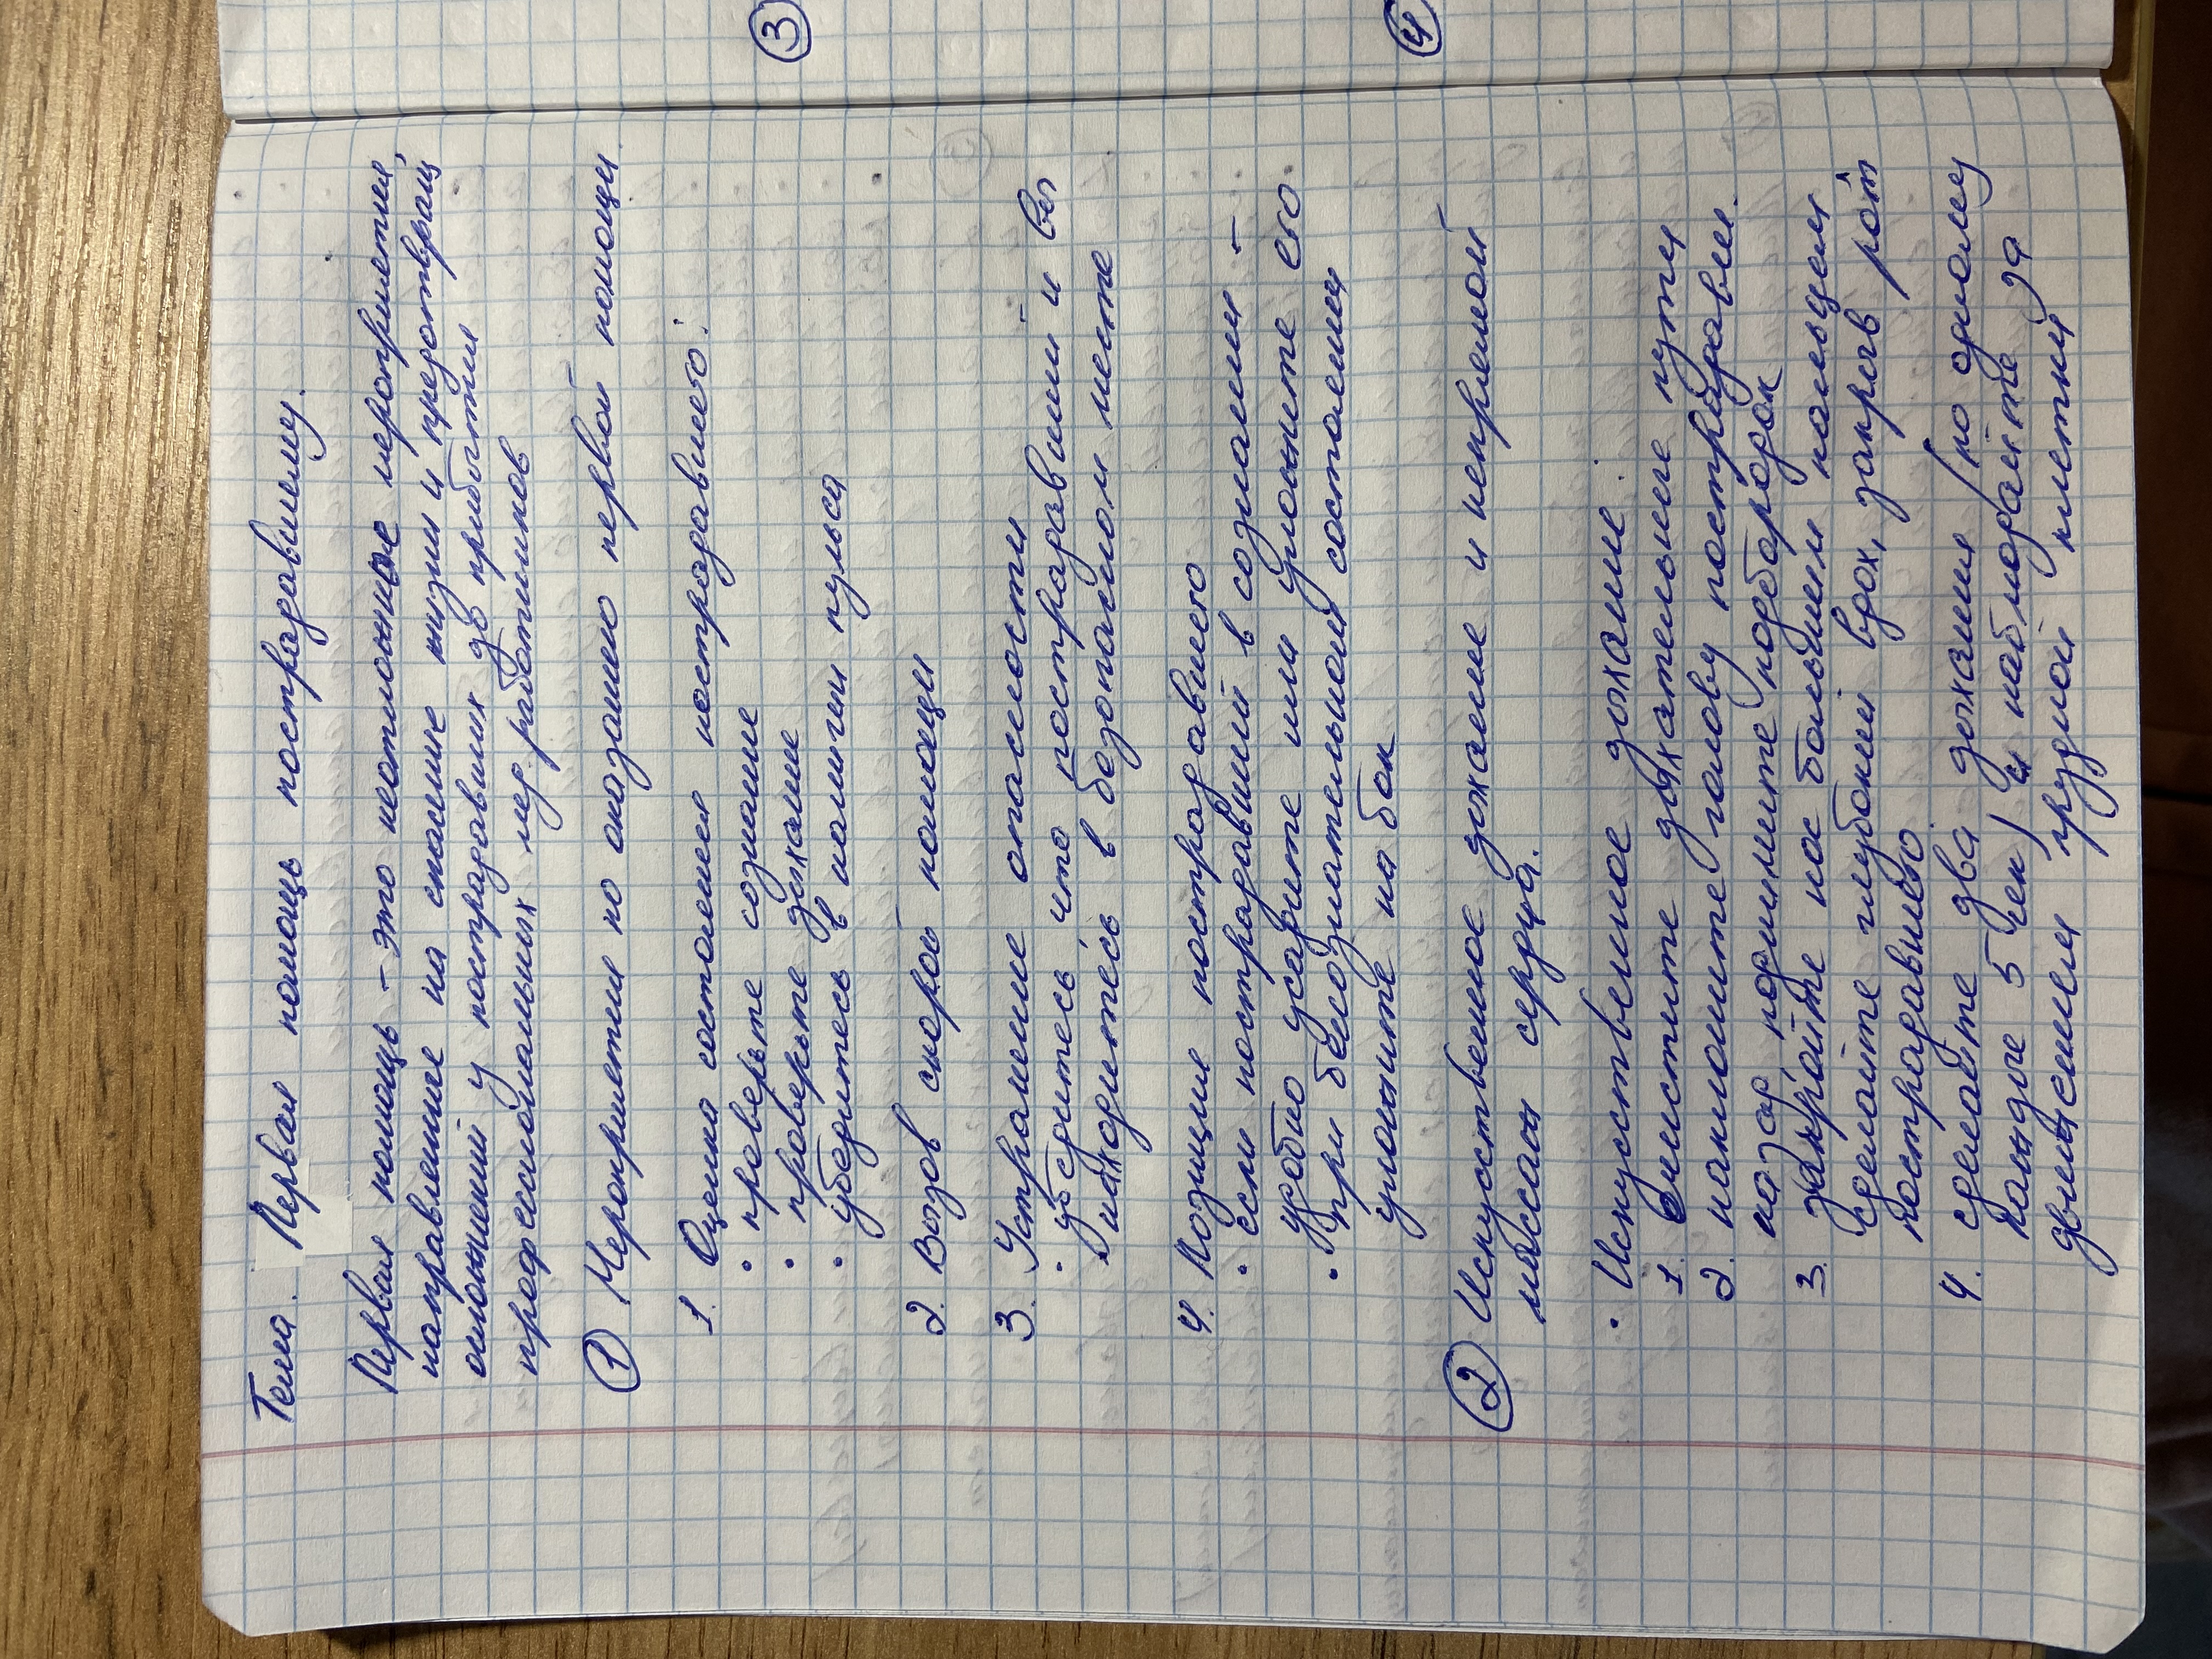 Тема. Первая помощь пострадавшему.
Первая помощь - это неотложные мероприятия,
направленные на спасение жизни и предотвращ
осложнений у пострадавших до прибытия
профессиональных мед. работников
① Мероприятия по оказанию первой помощи.
1. Оценка состояния пострадавшего:
• проверьте сознание
• проверьте дыхание
• убедитесь в наличии пульса
2. Вызов скорой помощи
3. Устранение опасности
• убедитесь что пострадавший и вы
находитесь в безопасном месте
4. Позиция пострадавшего
• если пострадавший в сознании -
удобно усадите или уложите его.
• При бессознательном состоянии
уложите на бок
② Искусственное дыхание и непрямой
массаж сердца.
• Искусственное дыхание:
1. очистите дыхательные пути
2. наклоните голову пострадавшего
назад поднимите подбородок
3. закройте нос большим пальцем
сделайте глубокий вдох, закрыв рот
пострадавшего.
4. сделайте два дыхания (по одному
каждые 5 сек) и наблюдайте за
движением грудной клетки
③
④